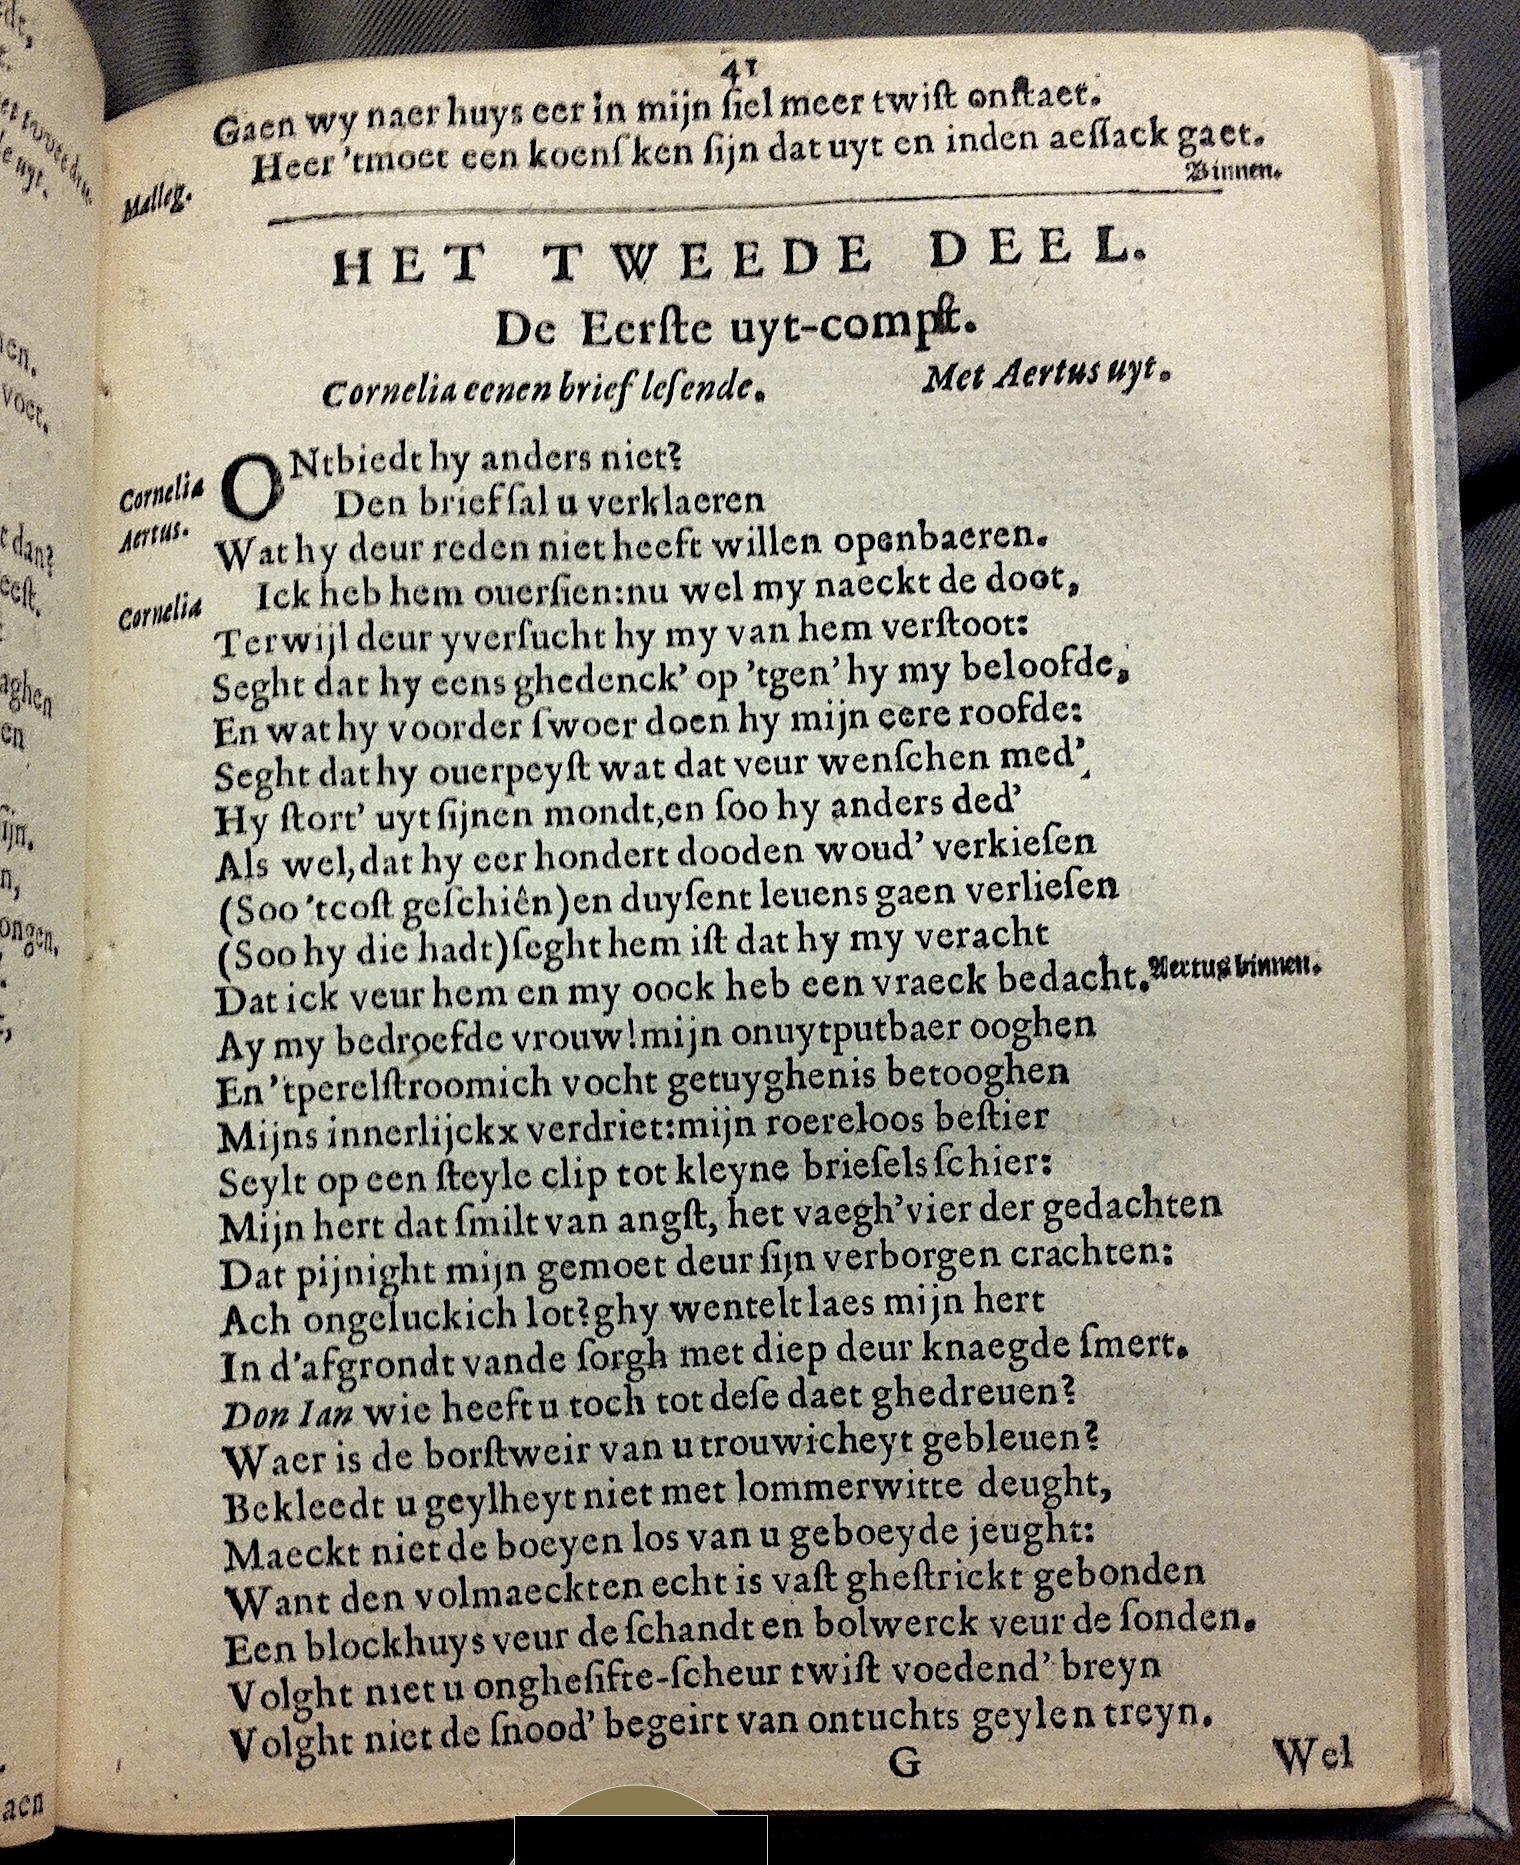 41
Gaen wy naer huys eer in mijn ſiel meer twiſt onſtaet.
Malleg. Heer 'tmoet een koenſken ſijn dat uyt en inden aeſſack gaet.
Binnen.
HET TWEEDE DEEL.
De Eerſte uyt-compſt.
Cornelia eenen brief leſende. Met Aertus uyt.
Cornelia ONtbiedt hy anders niet?
Aertus. Den brief ſal u verklaeren
Wat hy deur reden niet heeft willen openbaeren.
Cornelia Ick heb hem ouerſien:nu wel my naeckt de doot,
Terwijl deur yverſucht hy my van hem verſtoot:
Seght dat hy eens ghedenck' op 'tgen' hy my beloofde,
En wat hy voorder ſwoer doen hy mijn eere roofde:
Seght dat hy ouerpeyſt wat dat veur wenſchen med',
Hy ſtort' uyt ſijnen mondt,en ſoo hy anders ded'
Als wel,dat hy eer hondert dooden woud' verkieſen
(Soo 'tcoſt geſchiên)en duyſent leuens gaen verlieſen
(Soo hy die hadt)ſeght hem iſt dat hy my veracht
Dat ick veur hem en my oock heb een vraeck bedacht. Aertus binnen.
Ay my bedroefde vrouw!mijn onuytputbaer ooghen
En 'tperelſtroomich vocht getuyghenis betooghen
Mijns innerlijckx verdriet:mijn roereloos beſtier
Seylt op een ſteyle clip tot kleyne brieſels ſchier:
Mijn hert dat ſmilt van angſt, het vaegh'vier der gedachten
Dat pijnight mijn gemoet deur ſijn verborgen crachten:
Ach ongeluckich lot?ghy wentelt laes mijn hert
In d'afgrondt vande ſorgh met diep deur knaegde ſmert.
Don Ian wie heeft u toch tot deſe daet ghedreuen?
Waer is de borſtweir van u trouwicheyt gebleuen?
Bekleedt u geylheyt niet met lommerwitte deught,
Maeckt niet de boeyen los van u geboeyde jeught:
Want den volmaeckten echt is vaſt gheſtrickt gebonden
Een blockhuys veur de ſchandt en bolwerck veur de ſonden.
Volght niet u ongheſifte-ſcheur twiſt voedend' breyn
Volght niet de ſnood' begeirt van ontuchts geylen treyn.
G Wel